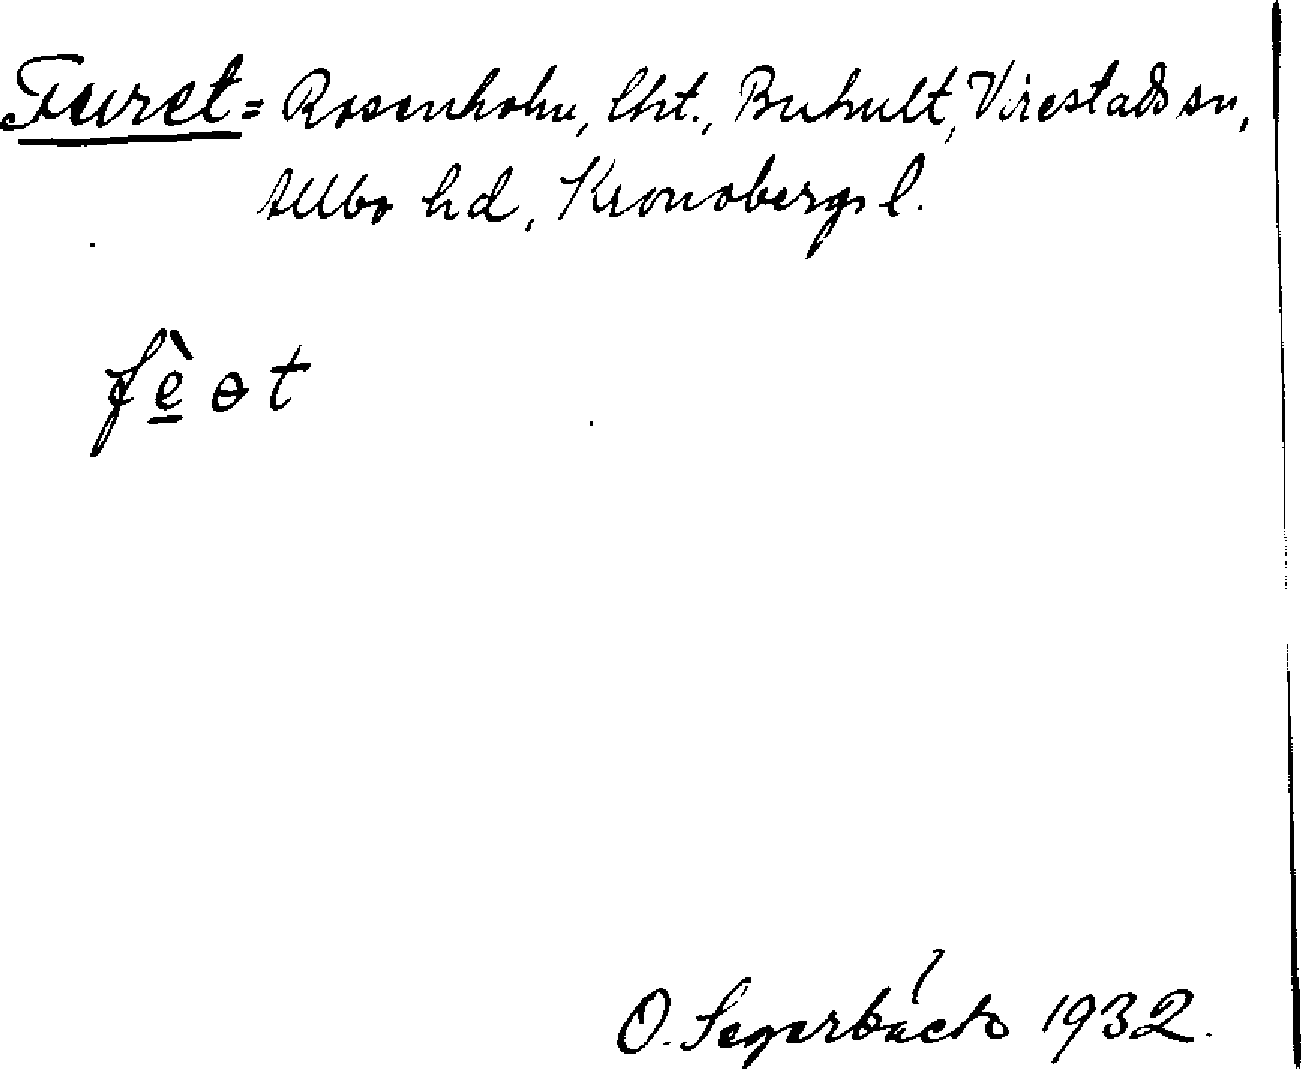 Furet = Rosenholm, lht., Buhult, Virestads sn,
Allbo hd, Kronobergs l.
fè̱ɵt
O. Segerbäck 1932.